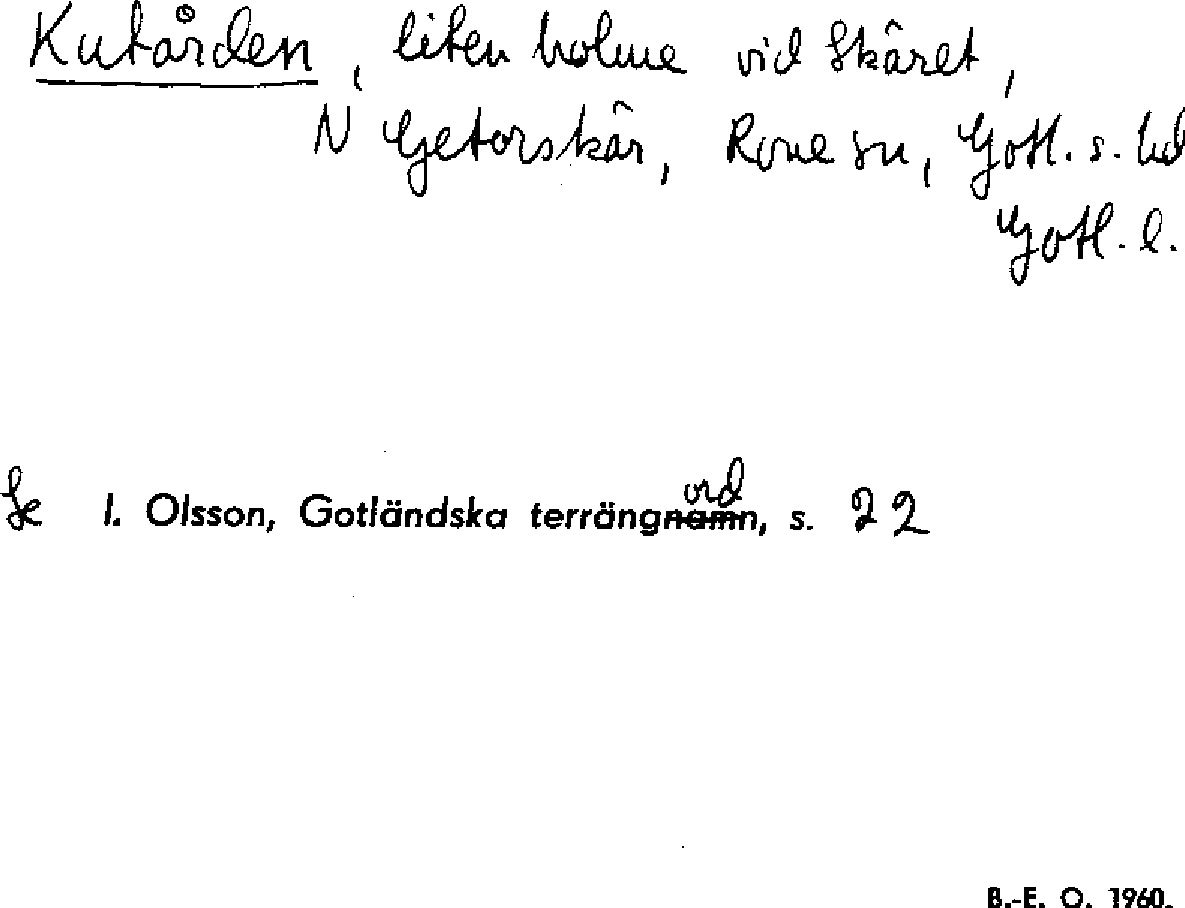 Kutården, liten holme vid Skäret,
N Getorskär, Rone sn, Gotl. s. hd
Gotl. l.
Se I. Olsson, Gotländska terrängord, s. 22
B.-E. O. 1960.